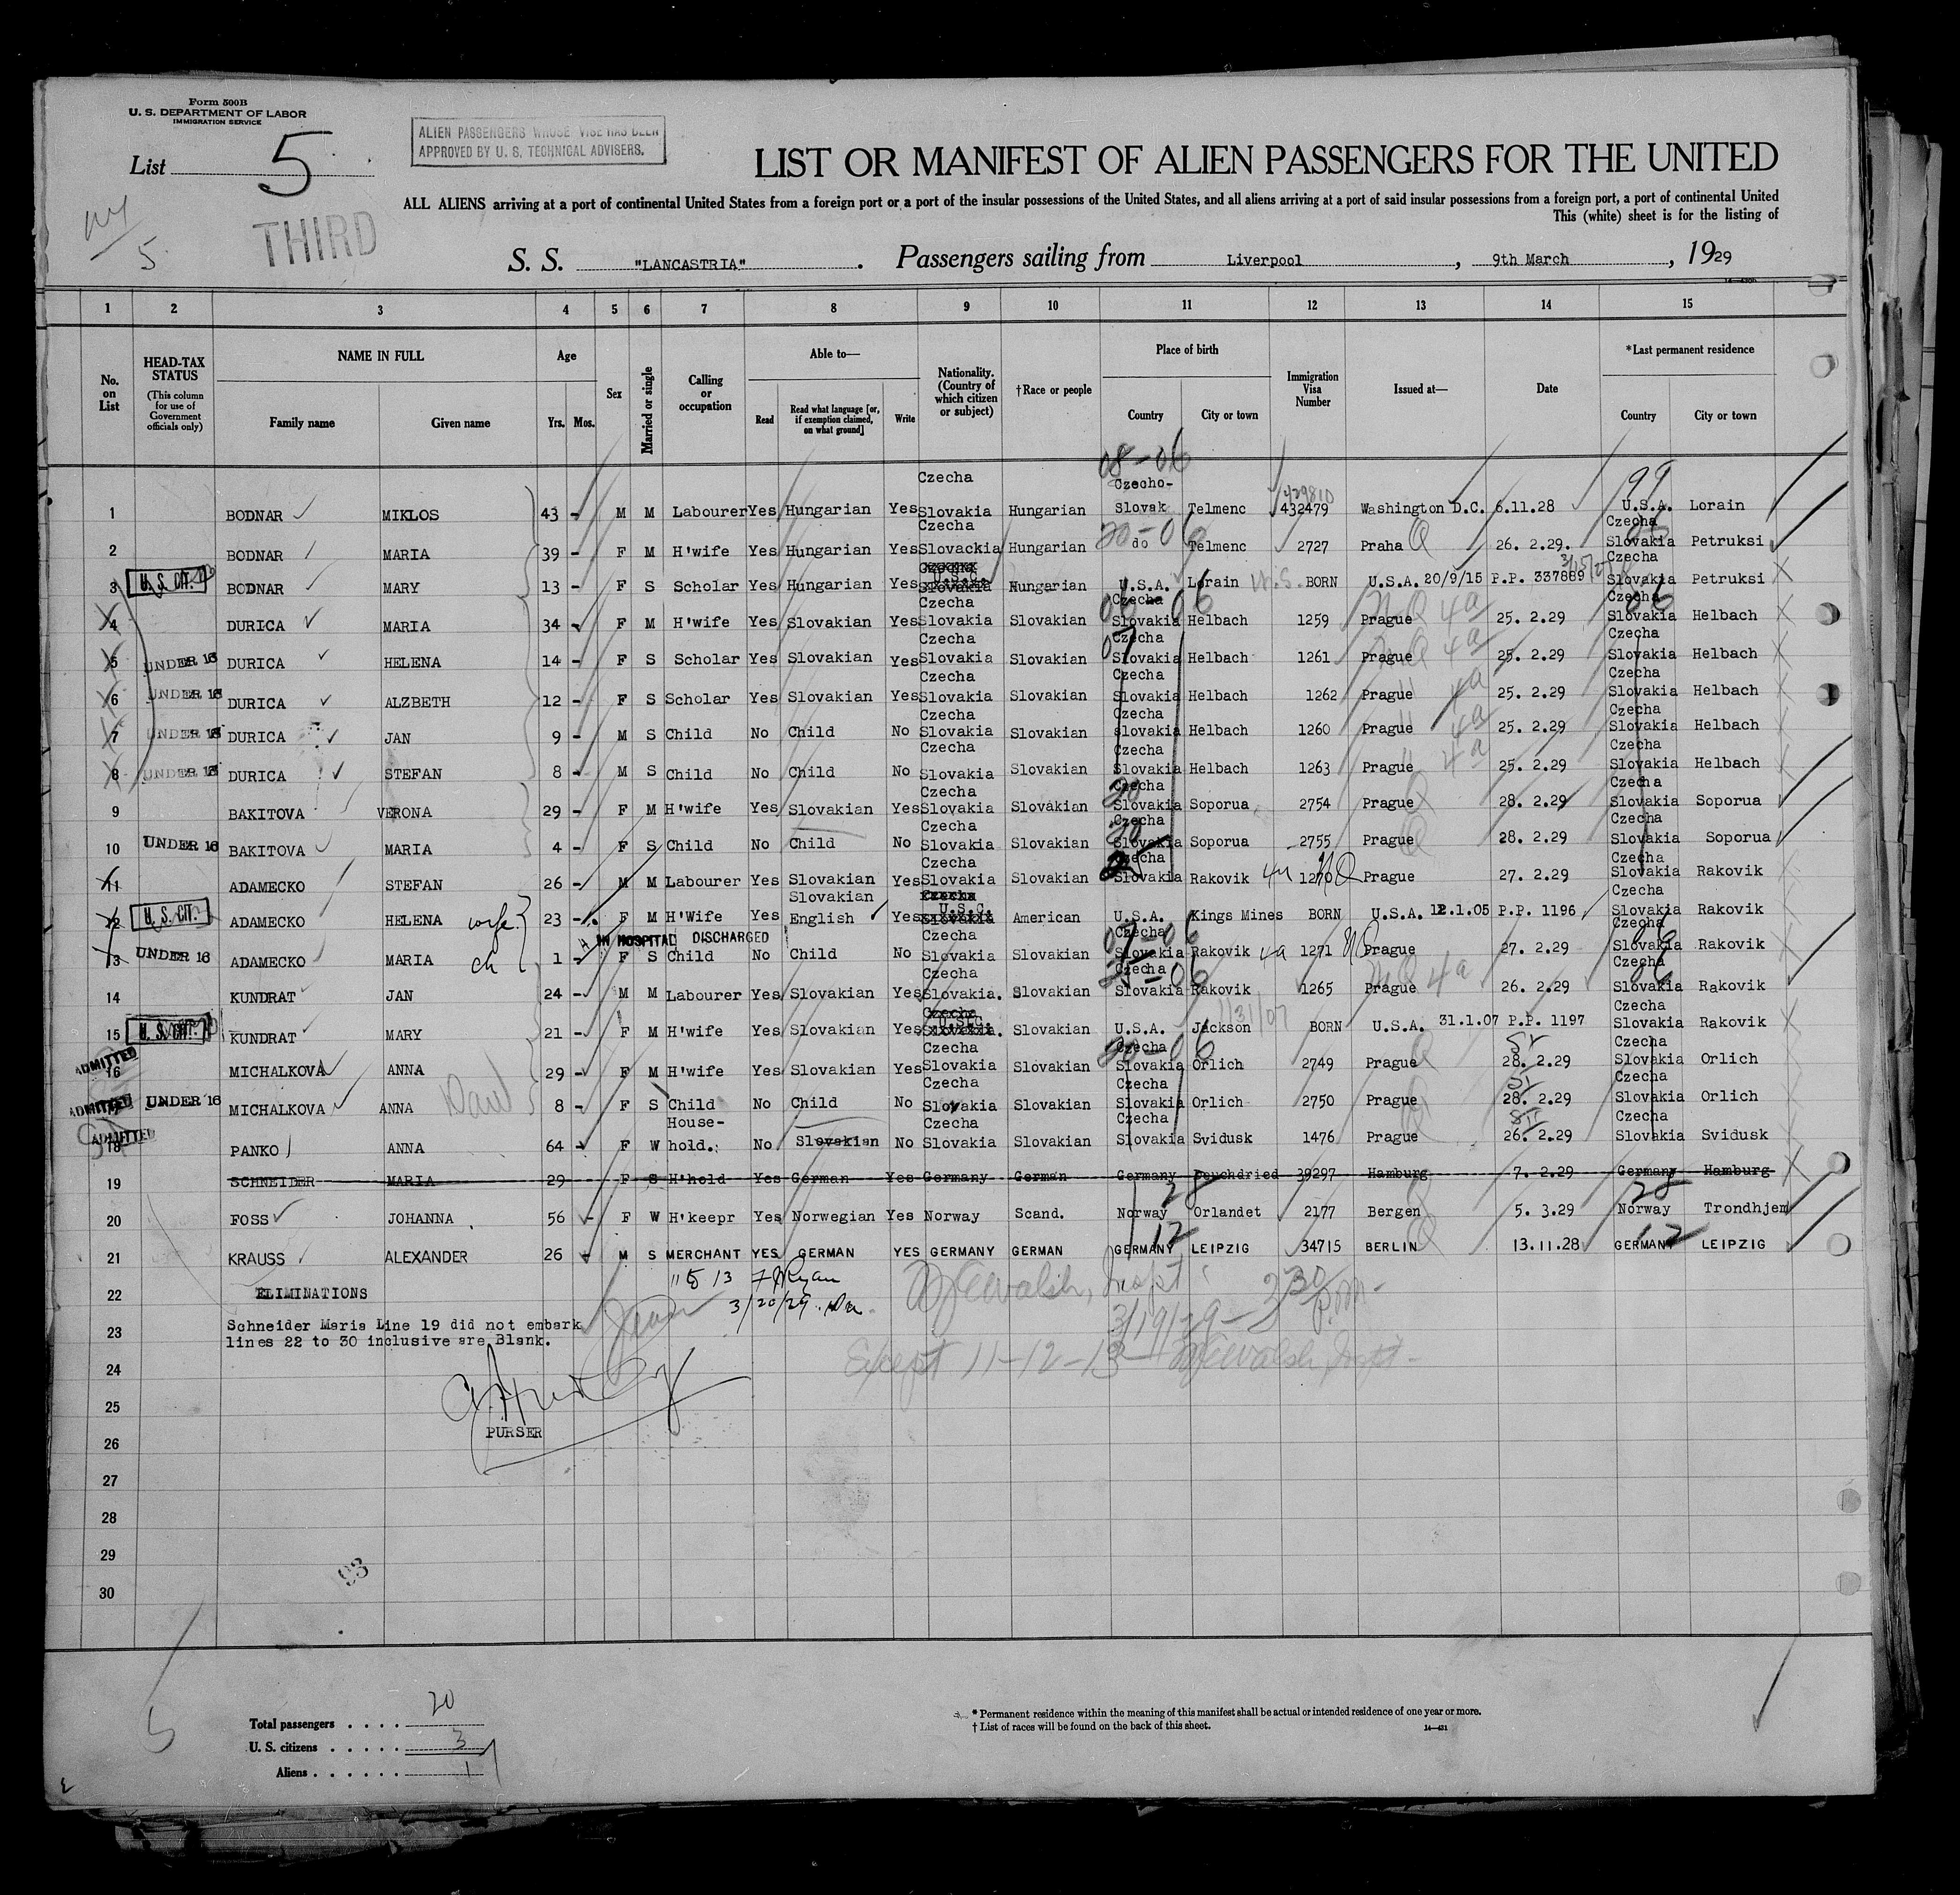 Form 500B
U. S. DEPARTMENT OF LABOR
IMMIGRATION SERVICE
ALIEN PASSENGERS WHOSE VISE HAS BEEN
APPROVED BY U. S. TECHNICAL ADVISERS.
List 5
LIST OR MANIFEST OF ALIEN PASSENGERS FOR THE UNITED
ALL ALIENS arriving at a port of continental United States from a foreign port or a port of the insular possessions of the United States, and all aliens arriving at a port of said insular possessions from a foreign port, a port of continental United
This (white) sheet is for the listing of
5
THIRD
S. S. "LANCASTRIA". Passengers sailing from Liverpool, 9th March, 1929
1 2 3 4 5 6 7 8 9 10 11 12 13 14 15
No. on List
HEAD-TAX STATUS (This column for use of Government officials only)
NAME IN FULL
Family name Given name
Age
Yrs. Mos.
Sex
Married or single
Calling or occupation
Able to—
Read Read what language [or, if exemption claimed, on what ground] Write
Nationality. (Country of which citizen or subject)
†Race or people
Place of birth
Country City or town
Immigration Visa Number
Issued at—
Date
*Last permanent residence
Country City or town
08-06 99
429810
1 BODNAR MIKLOS 43 - M M Labourer Yes Hungarian Yes Czecha Slovakia Hungarian Czecho-Slovak Telmenc 432479 Washington D.C. 6.11.28 U.S.A. Lorain
2 BODNAR MARIA 39 - F M H'wife Yes Hungarian Yes Czecha Slovackia Hungarian do Telmenc 2727 Praha 26. 2.29. Czecha Slovakia Petruksi
3 U. S. CIT. BODNAR MARY 13 - F S Scholar Yes Hungarian Yes Czecha Slovakia Hungarian U.S.A. Lorain BORN U.S.A. 20/9/15 P.P. 337889 Czecha Slovakia Petruksi
4 DURICA MARIA 34 - F M H'wife Yes Slovakian Yes Czecha Slovakia Slovakian Czecha Slovakia Helbach 1259 Prague 25. 2.29 Czecha Slovakia Helbach
5 UNDER 16 DURICA HELENA 14 - F S Scholar Yes Slovakian Yes Czecha Slovakia Slovakian Czecha Slovakia Helbach 1261 Prague 25. 2.29 Czecha Slovakia Helbach
6 UNDER 16 DURICA ALZBETH 12 - F S Scholar Yes Slovakian Yes Czecha Slovakia Slovakian Czecha Slovakia Helbach 1262 Prague 25. 2.29 Czecha Slovakia Helbach
7 UNDER 16 DURICA JAN 9 - M S Child No Child No Czecha Slovakia Slovakian Czecha Slovakia Helbach 1260 Prague 25. 2.29 Czecha Slovakia Helbach
8 UNDER 16 DURICA STEFAN 8 - M S Child No Child No Czecha Slovakia Slovakian Czecha Slovakia Helbach 1263 Prague 25. 2.29 Czecha Slovakia Helbach
9 BAKITOVA VERONA 29 - F M H'wife Yes Slovakian Yes Czecha Slovakia Slovakian Czecha Slovakia Soporua 2754 Prague 28. 2.29 Czecha Slovakia Soporua
10 UNDER 16 BAKITOVA MARIA 4 - F S Child No Child No Czecha Slovakia Slovakian Czecha Slovakia Soporua 2755 Prague 28. 2.29 Czecha Slovakia Soporua
11 ADAMECKO STEFAN 26 - M M Labourer Yes Slovakian Yes Czecha Slovakia Slovakian Czecha Slovakia Rakovik 1270 Prague 27. 2.29 Czecha Slovakia Rakovik
12 U. S. CIT. ADAMECKO HELENA wife 23 - F M H'Wife Yes Slovakian English Yes Czecha Slovakia U.S.C. American U.S.A. Kings Mines BORN U.S.A. 12.1.05 P.P. 1196 Czecha Slovakia Rakovik
IN HOSPITAL DISCHARGED
13 UNDER 16 ADAMECKO MARIA ch 1 - F S Child No Child No Czecha Slovakia Slovakian Czecha Slovakia Rakovik 4a 1271 Prague 27. 2.29 Czecha Slovakia Rakovik
14 KUNDRAT JAN 24 - M M Labourer Yes Slovakian Yes Czecha Slovakia. Slovakian Czecha Slovakia Rakovik 1265 Prague 4a 26. 2.29 Czecha Slovakia Rakovik
15 U. S. CIT. KUNDRAT MARY 21 - F M H'wife Yes Slovakian Yes Czecha Slovakia. U.S.C. Slovakian U.S.A. Jackson 1/31/07 BORN U.S.A. 31.1.07 P.P. 1197 Czecha Slovakia Rakovik
ADMITTED
16 MICHALKOVA ANNA 29 - F M H'wife Yes Slovakian Yes Czecha Slovakia Slovakian Czecha Slovakia Orlich 2749 Prague 28. 2.29 Czecha Slovakia Orlich
ADMITTED UNDER 16 MICHALKOVA ANNA 8 - F S Child No Child No Czecha Slovakia Slovakian Czecha Slovakia Orlich 2750 Prague 28. 2.29 Czecha Slovakia Orlich
ADMITTED
18 PANKO ANNA 64 - F W House-hold. No Slovakian No Czecha Slovakia Slovakian Czecha Slovakia Svidusk 1476 Prague 26. 2.29 Czecha Slovakia Svidusk
19 SCHNEIDER MARIA 29 F S H'hold Yes German Yes Germany German Germany 39297 Hamburg 7. 2.29 Germany Hamburg
20 FOSS JOHANNA 56 - F W H'keepr Yes Norwegian Yes Norway Scand. Norway Orlandet 2177 Bergen 5. 3.29 Norway Trondhjem
21 KRAUSS ALEXANDER 26 - M S MERCHANT YES GERMAN YES GERMANY GERMAN GERMANY LEIPZIG 34715 BERLIN 13.11.28 GERMANY LEIPZIG
22 ELIMINATIONS
3/20/29
3/19/29 - 2 30 P.M.
23 Schneider Maria Line 19 did not embark
lines 22 to 30 inclusive are Blank.
Except 11-12-13
24
25
PURSER
26
27
28
29
93
30
Total passengers . . . . 20
U. S. citizens . . . . . 3
Aliens . . . . . .
* Permanent residence within the meaning of this manifest shall be actual or intended residence of one year or more.
† List of races will be found on the back of this sheet. 14—431